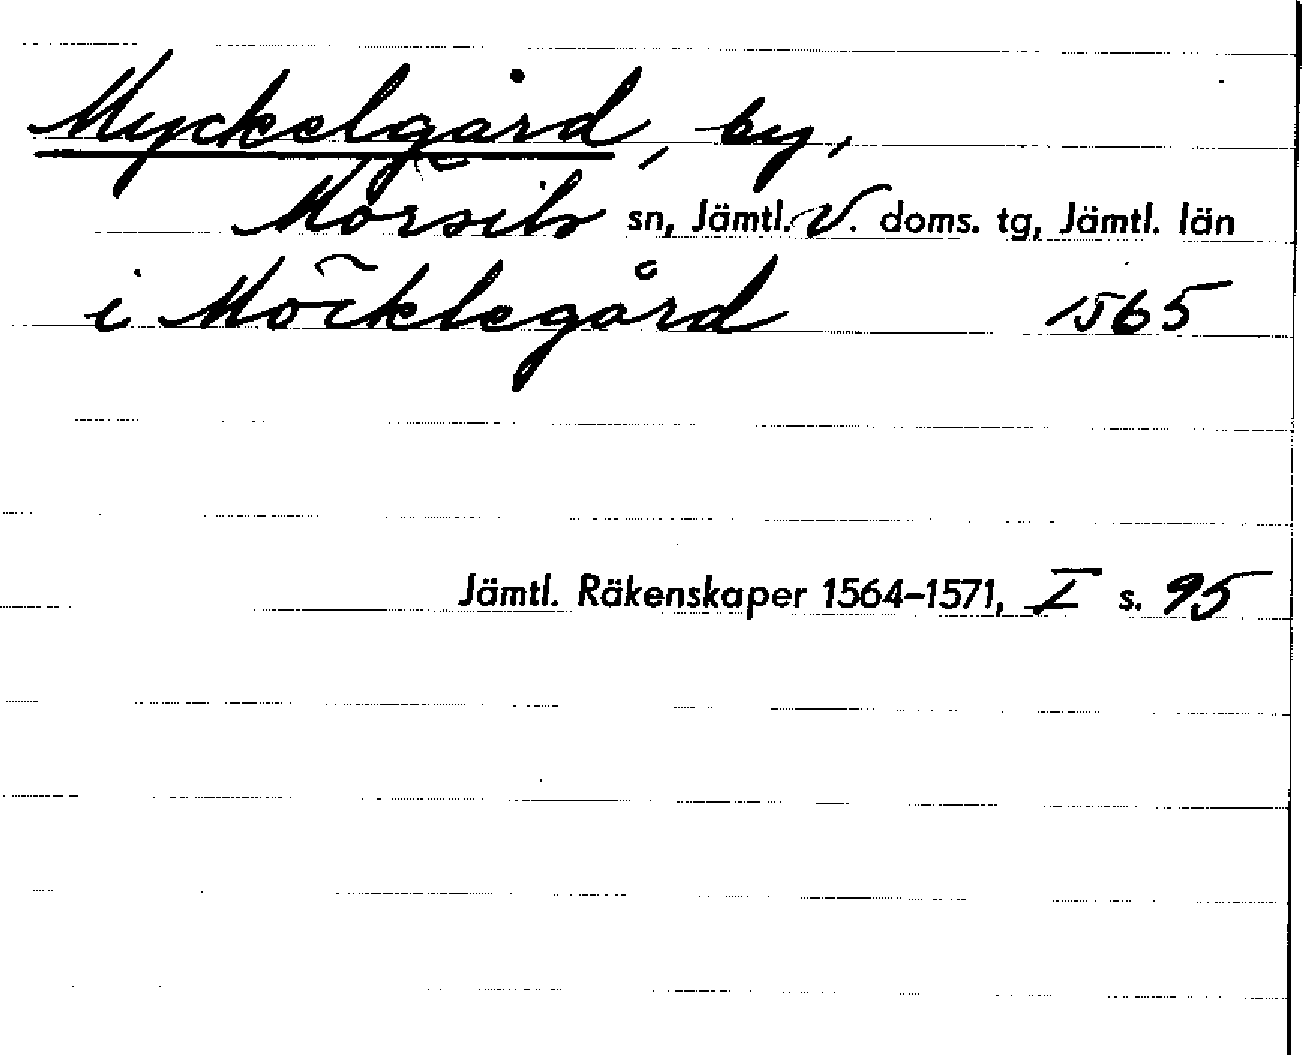 Myckelgård, by,
Mörsils sn, Jämtl. V. doms. tg, Jämtl. län
i Möcklegård 1565
Jämtl. Räkenskaper 1564–1571, I s. 95